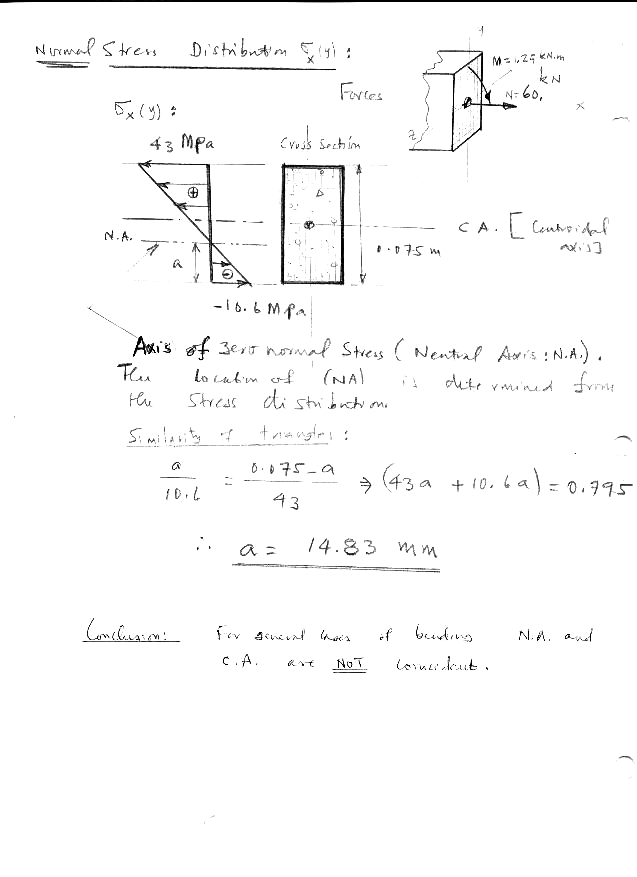 Normal Stress Distribution σx(y) :
y
M = 1.25 kN.m
kN
N = 60,
x
z
Forces
σx(y) :
43 MPa
Cross Section
⊕
N.A.
C.A. [Centroidal axis]
0.075 m
a
⊖
-10.6 MPa
Axis of zero normal Stress (Neutral Axis : N.A.).
The location of (NA) is determined from
the Stress distribution.
Similarity of triangles :
a/10.6 = 0.075-a/43 ⇒ (43a + 10.6a) = 0.795
∴ a = 14.83 mm
Conclusion: For general cases of bending N.A. and
C.A. are NOT coincident.